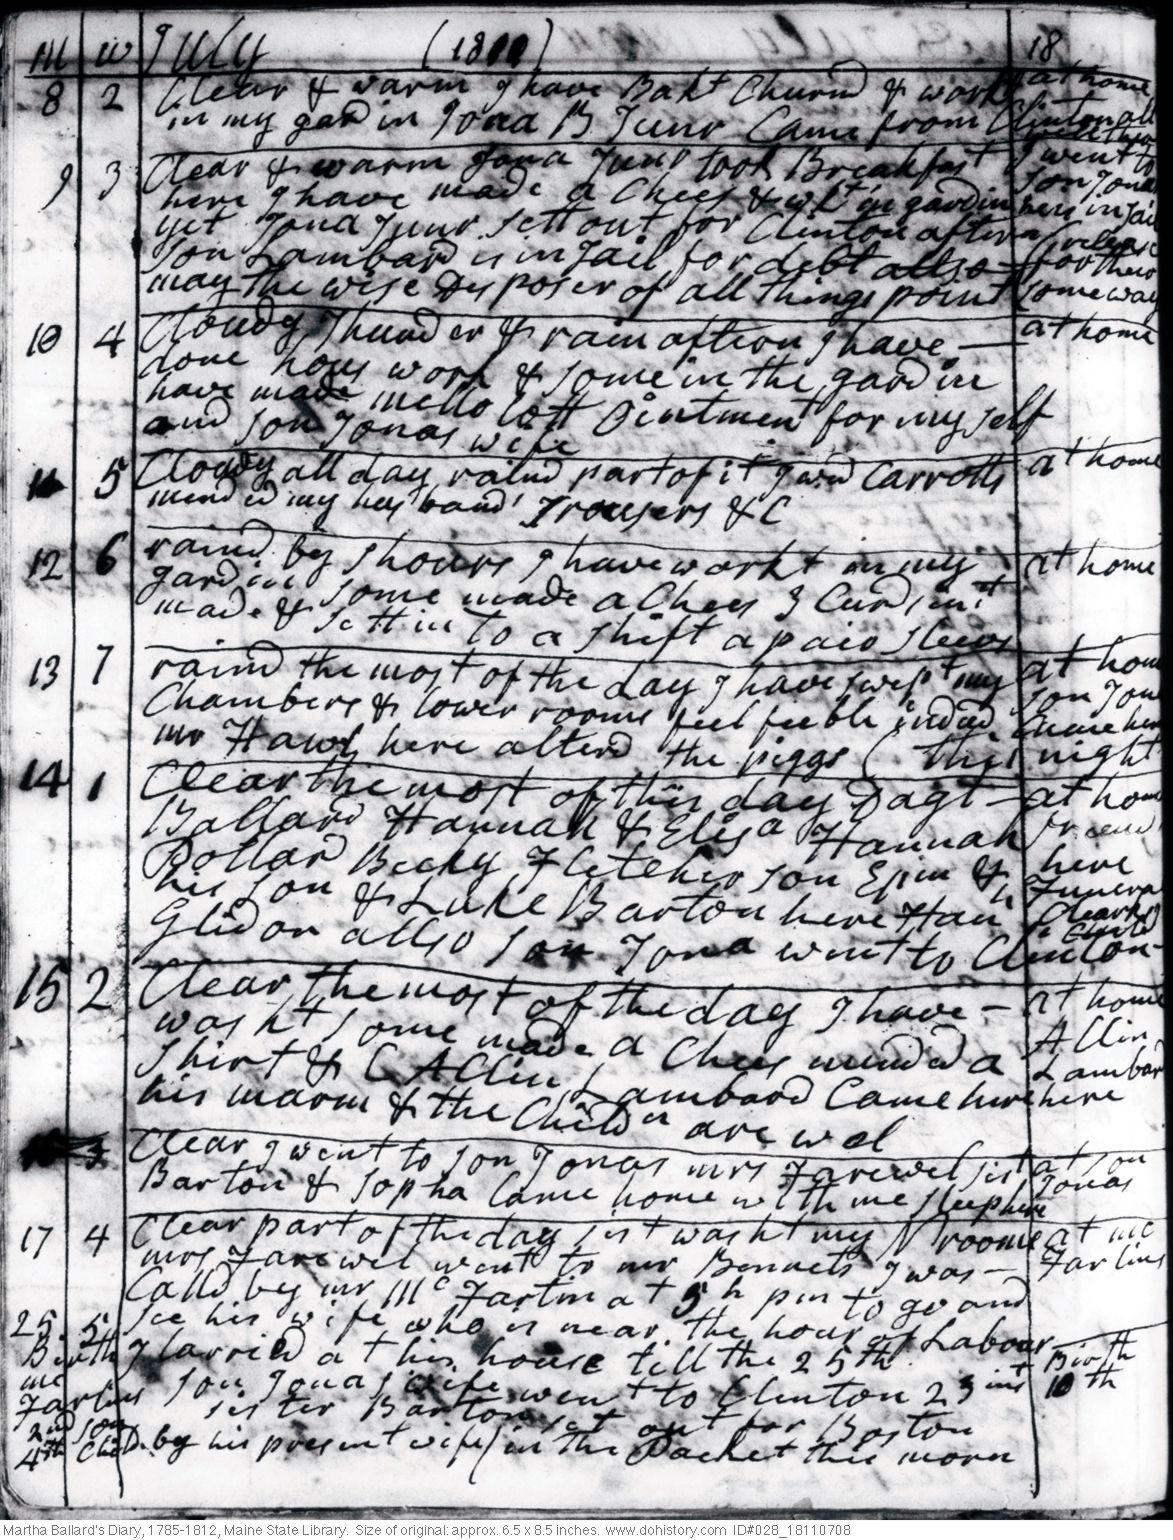 m w July (1811) 18
8 2 Clear & warm I have Bakt Churnd & workt at home
in my gardin Jona B Junr Came from Clinton all
9 3 Clear & warm Jona Junr took Breakfast I went to
here I have made a Chees & wkt in gardin son Jonas
yet Jona Junr sett out for Clinton aftern
Son Lambard is in Jail for debt allso
may the wise disposer of all things point some way
10 4 Cloudy Thunder & rain aftern I have — at home
done hous work & some in the gardin
have made mellolott Ointment for my self
and son Jonas wife
11 5 Cloudy all day raind part of it I wd Carrotts at home
mended my husband Trousers &C
12 6 raind by shours I have workt in my at home
gardin some made a Chees & Curd
made & sett in to a shift a pair sleevs
13 7 raind the most of the day I have swept my at home
Chambers & lower rooms feel feeble indeed son Jona
mr Haws here alterd the piggs (this night
14 1 Clear the most of this day Dagt — at home
Ballard Hannah & Elisa Hannah
Pollard Becky Fletcher son Epm & here
his son & Luke Barton here Han Funeral
Glidon allso son Jona went to Clinton
15 2 Clear the most of the day I have — at home
washt some made a Chees mended a Allin
shirt & C Allin Lambard Came here Lambard
his marm & the Childn are wel here
3 Clear I went to son Jonas mrs Farewel sist at son
Barton & Sopha Came home with me sleep here Jonas
17 4 Clear part of the day sist washt my N room at mc
mrs Farewel went to mr Bennets I was — Farlins
Calld by mr McFarlin at 5 h pm to go and
see his wife who is near the hour of Labour
25 5 I tarried at his house till the 25th Birth
Birth son Jonas wife went to Clinton 23 inst 10th
mc Farlins sister Barton set out for Boston
2nd son
4th Child by his present wife (in the Packet this morn
Martha Ballard's Diary, 1785-1812, Maine State Library. Size of original: approx. 6.5 x 8.5 inches. www.dohistory.com ID#028_18110708